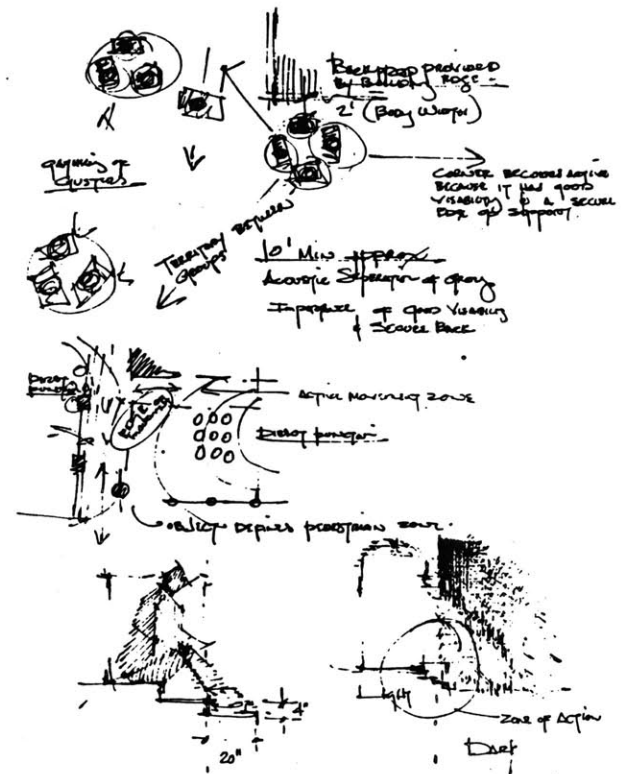 BACKDROP PROVIDED
BY BUILDING EDGE -
2' (BODY WIDTH)
GATHERING OF
CLUSTERS
CORNER BECOMES ACTIVE
BECAUSE IT HAS GOOD
VISABILITY & A SECURE
EDGE OF SUPPORT
TERRITORY BETWEEN
GROUPS
10' MIN APPROX
ACOUSTIC SEPERATION OF GROUP
IMPORTANCE OF GOOD VISABILITY
& SECURE BACK
EDGE
ACTIVE MOVEMENT ZONE
DIRECT
OBJECT DEFINES PEDESTRIAN ZONE.
4"
20"
LIGHT
ZONE OF ACTION
DARK